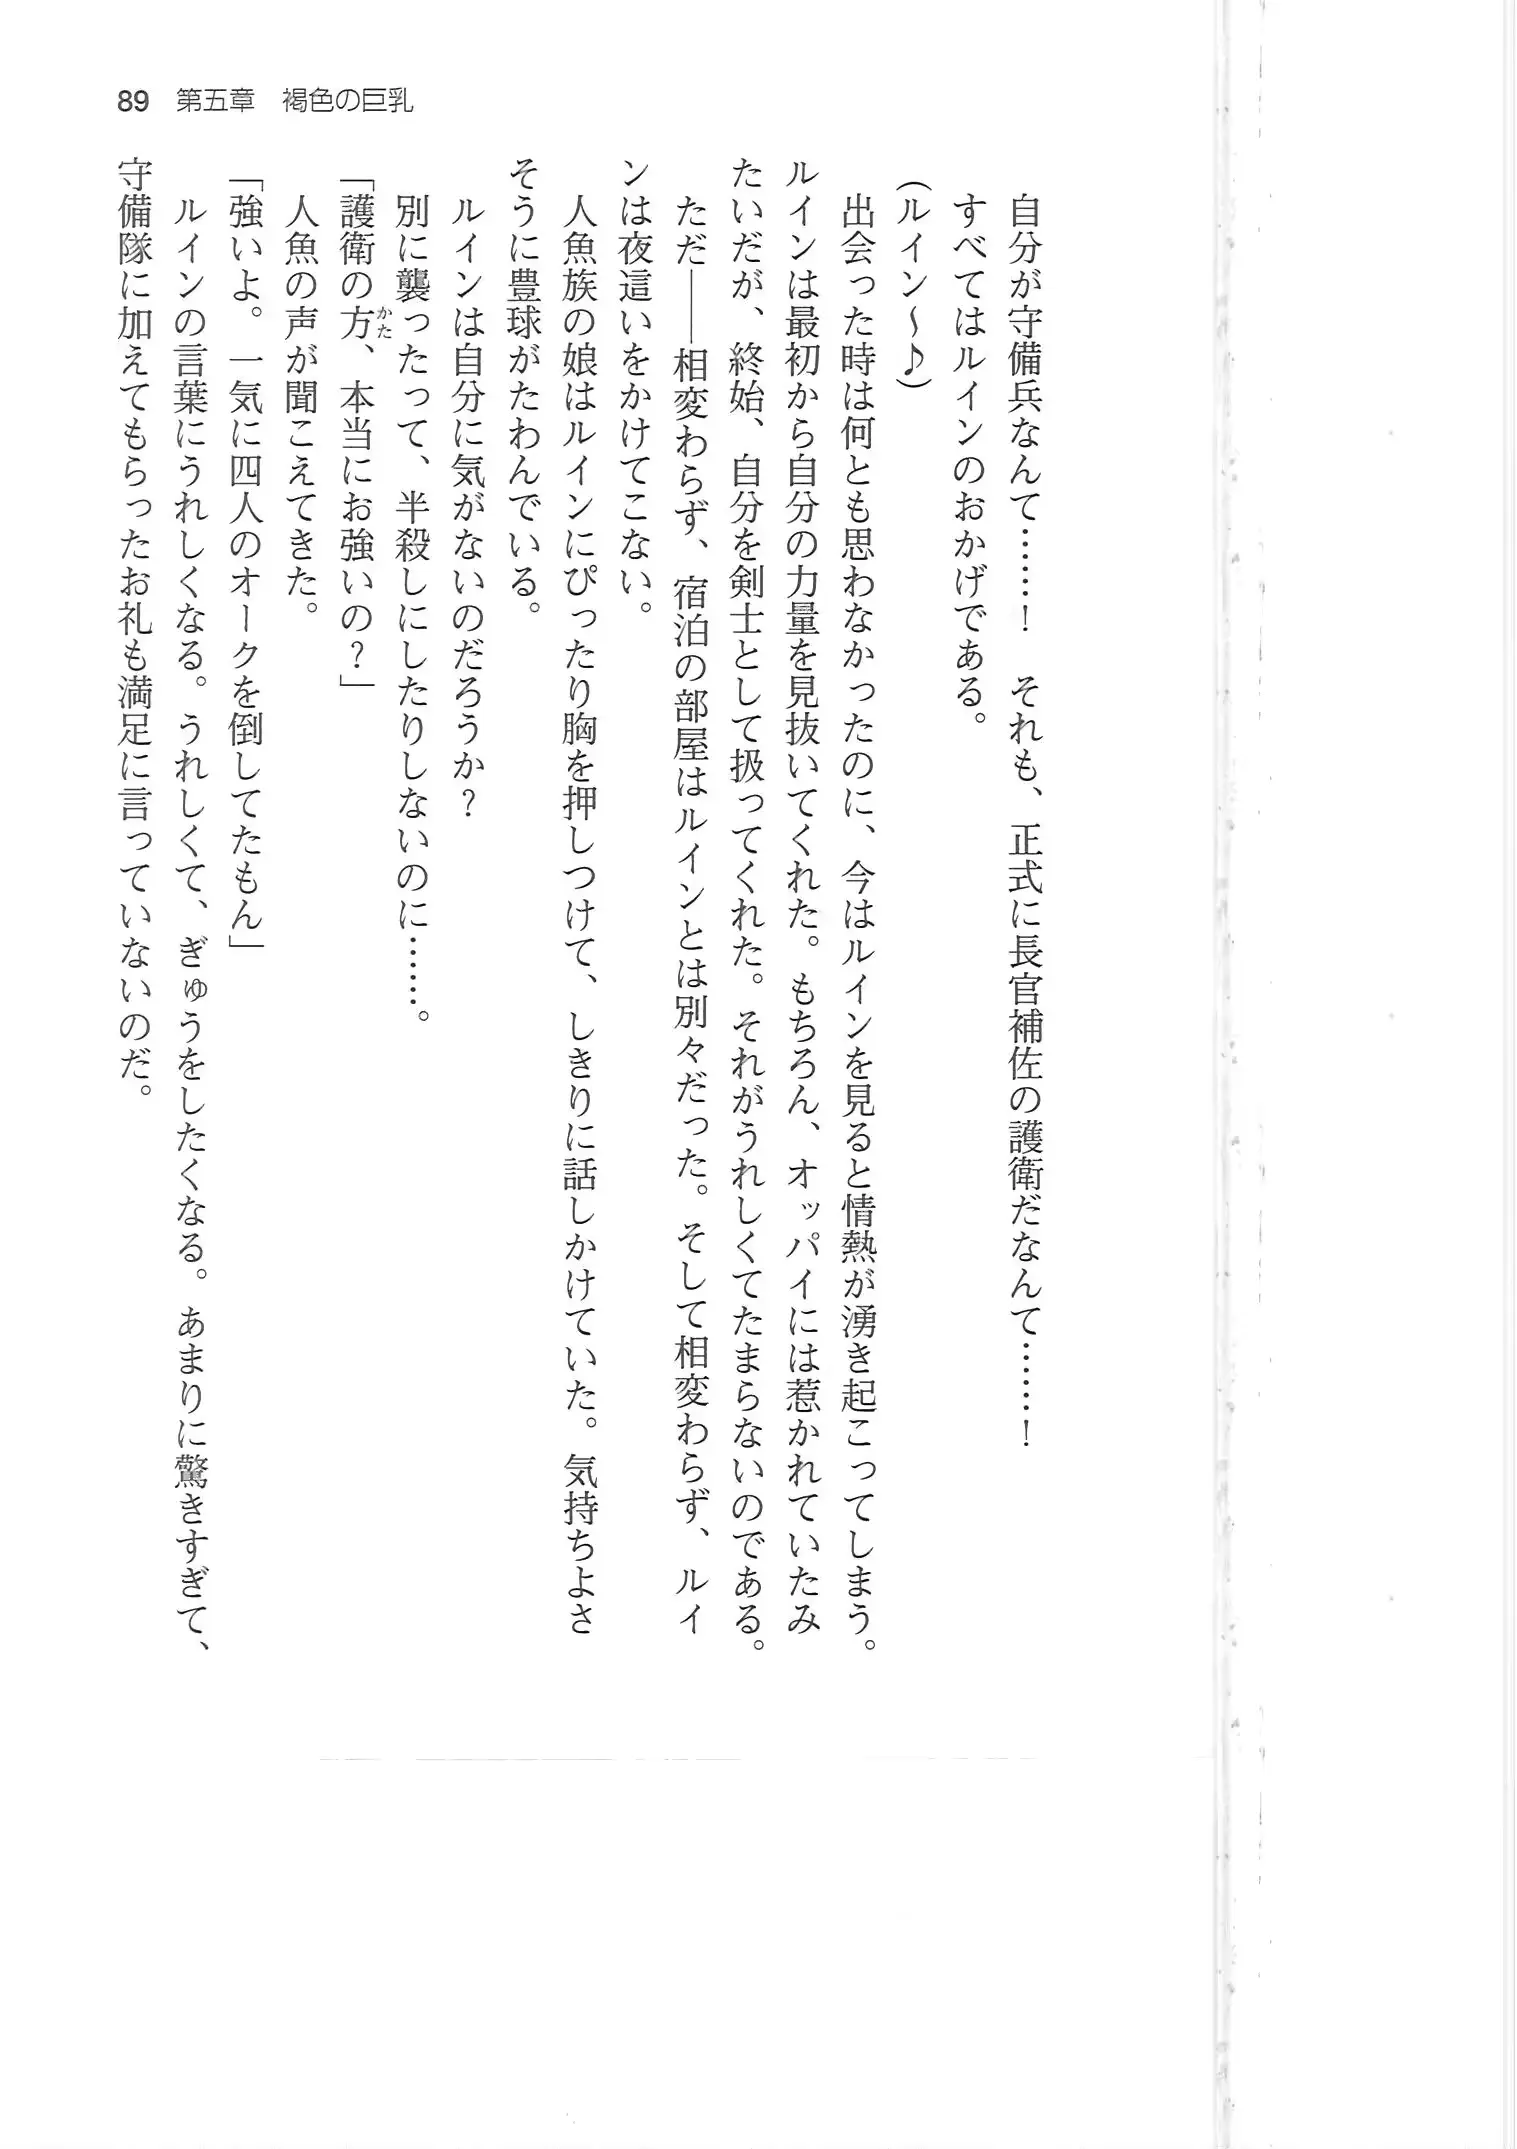 89 第五章 褐色の巨乳
自分が守備兵なんて……！ それも、正式に長官補佐の護衛だなんて……！
すべてはルインのおかげである。
（ルイン～♪）
出会った時は何とも思わなかったのに、今はルインを見ると情熱が湧き起こってしまう。
ルインは最初から自分の力量を見抜いてくれた。もちろん、オッパイには惹かれていたみ
たいだが、終始、自分を剣士として扱ってくれた。それがうれしくてたまらないのである。
ただ――相変わらず、宿泊の部屋はルインとは別々だった。そして相変わらず、ルイ
ンは夜這いをかけてこない。
人魚族の娘はルインにぴったり胸を押しつけて、しきりに話しかけていた。気持ちよさ
そうに豊球がたわんでいる。
ルインは自分に気がないのだろうか？
別に襲ったって、半殺しにしたりしないのに……。
「護衛の方、本当にお強いの？」
かた
人魚の声が聞こえてきた。
「強いよ。一気に四人のオークを倒してたもん」
ルインの言葉にうれしくなる。うれしくて、ぎゅうをしたくなる。あまりに驚きすぎて、
守備隊に加えてもらったお礼も満足に言っていないのだ。